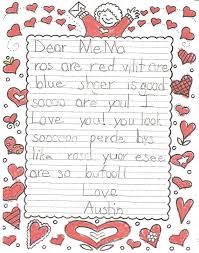 Dear MeMa
ros are red vilit are
blue shger is good
sooooo are you! I
Love you! you look
soooooo perde bys
like rasd yuor esee
are so butooll
Love
Austin